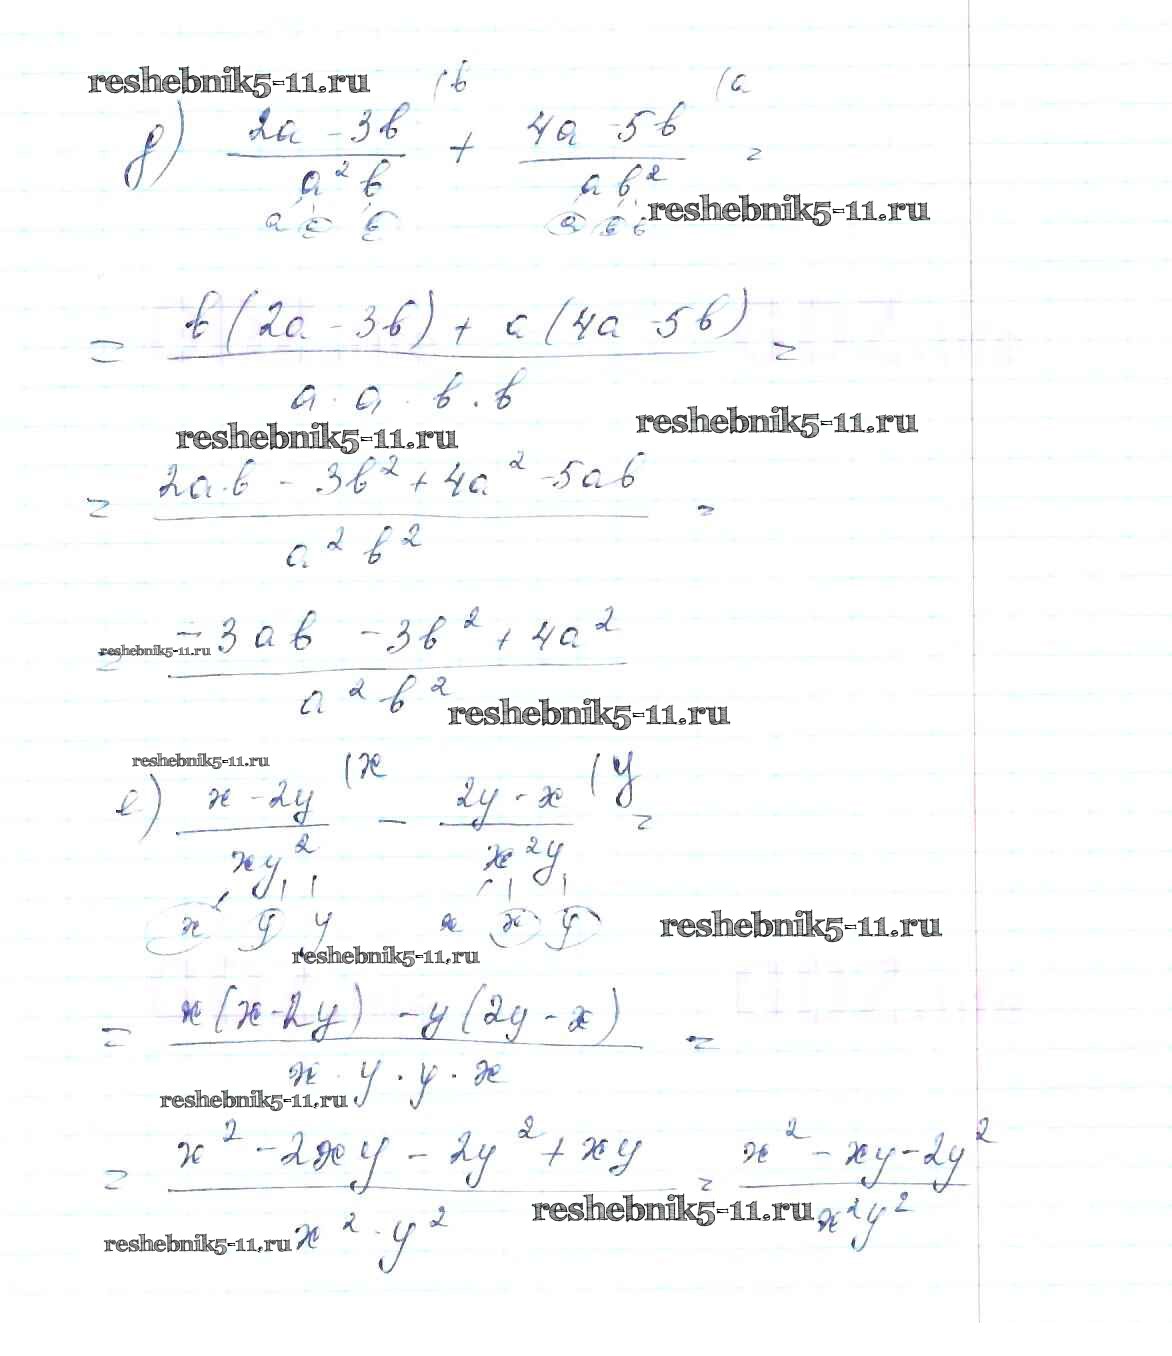 reshebnik5-11.ru (b (a
д) (2a - 3b)/(a²b) + (4a - 5b)/(ab²) =
a a b a b b reshebnik5-11.ru
= (b(2a - 3b) + a(4a - 5b))/(a · a · b · b) =
reshebnik5-11.ru reshebnik5-11.ru
= (2a·b - 3b² + 4a² - 5ab)/(a²b²) =
= (-3ab - 3b² + 4a²)/(a²b²)
reshebnik5-11.ru
reshebnik5-11.ru
reshebnik5-11.ru (x (y
е) (x - 2y)/(xy²) - (2y - x)/(x²y) =
x y y x x y reshebnik5-11.ru
reshebnik5-11.ru
= (x(x - 2y) - y(2y - x))/(x · y · y · x) =
reshebnik5-11.ru
= (x² - 2xy - 2y² + xy)/(x² · y²) = (x² - xy - 2y²)/(x²y²)
reshebnik5-11.ru
reshebnik5-11.ru